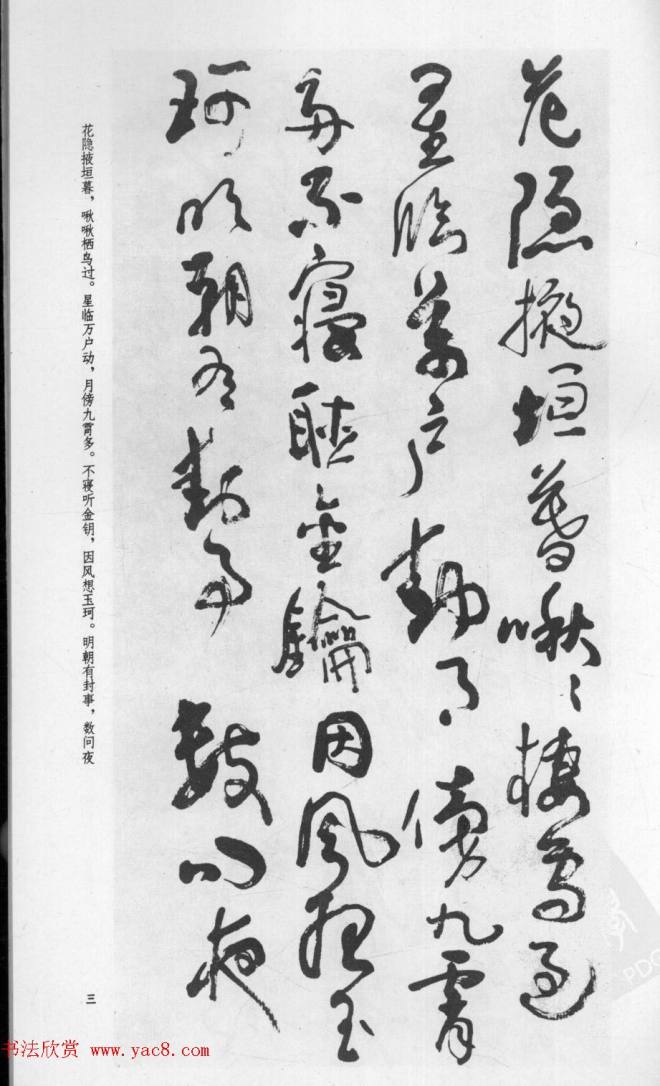 花隱掖垣暮啾〻棲鳥過
星臨萬戶動月傍九霄
多不寢聽金鑰因風想玉
珂明朝有封事數問夜
花隐掖垣暮，啾啾栖鸟过。星临万户动，月傍九霄多。不寝听金钥，因风想玉珂。明朝有封事，数问夜
三
书法欣赏 www.yac8.com